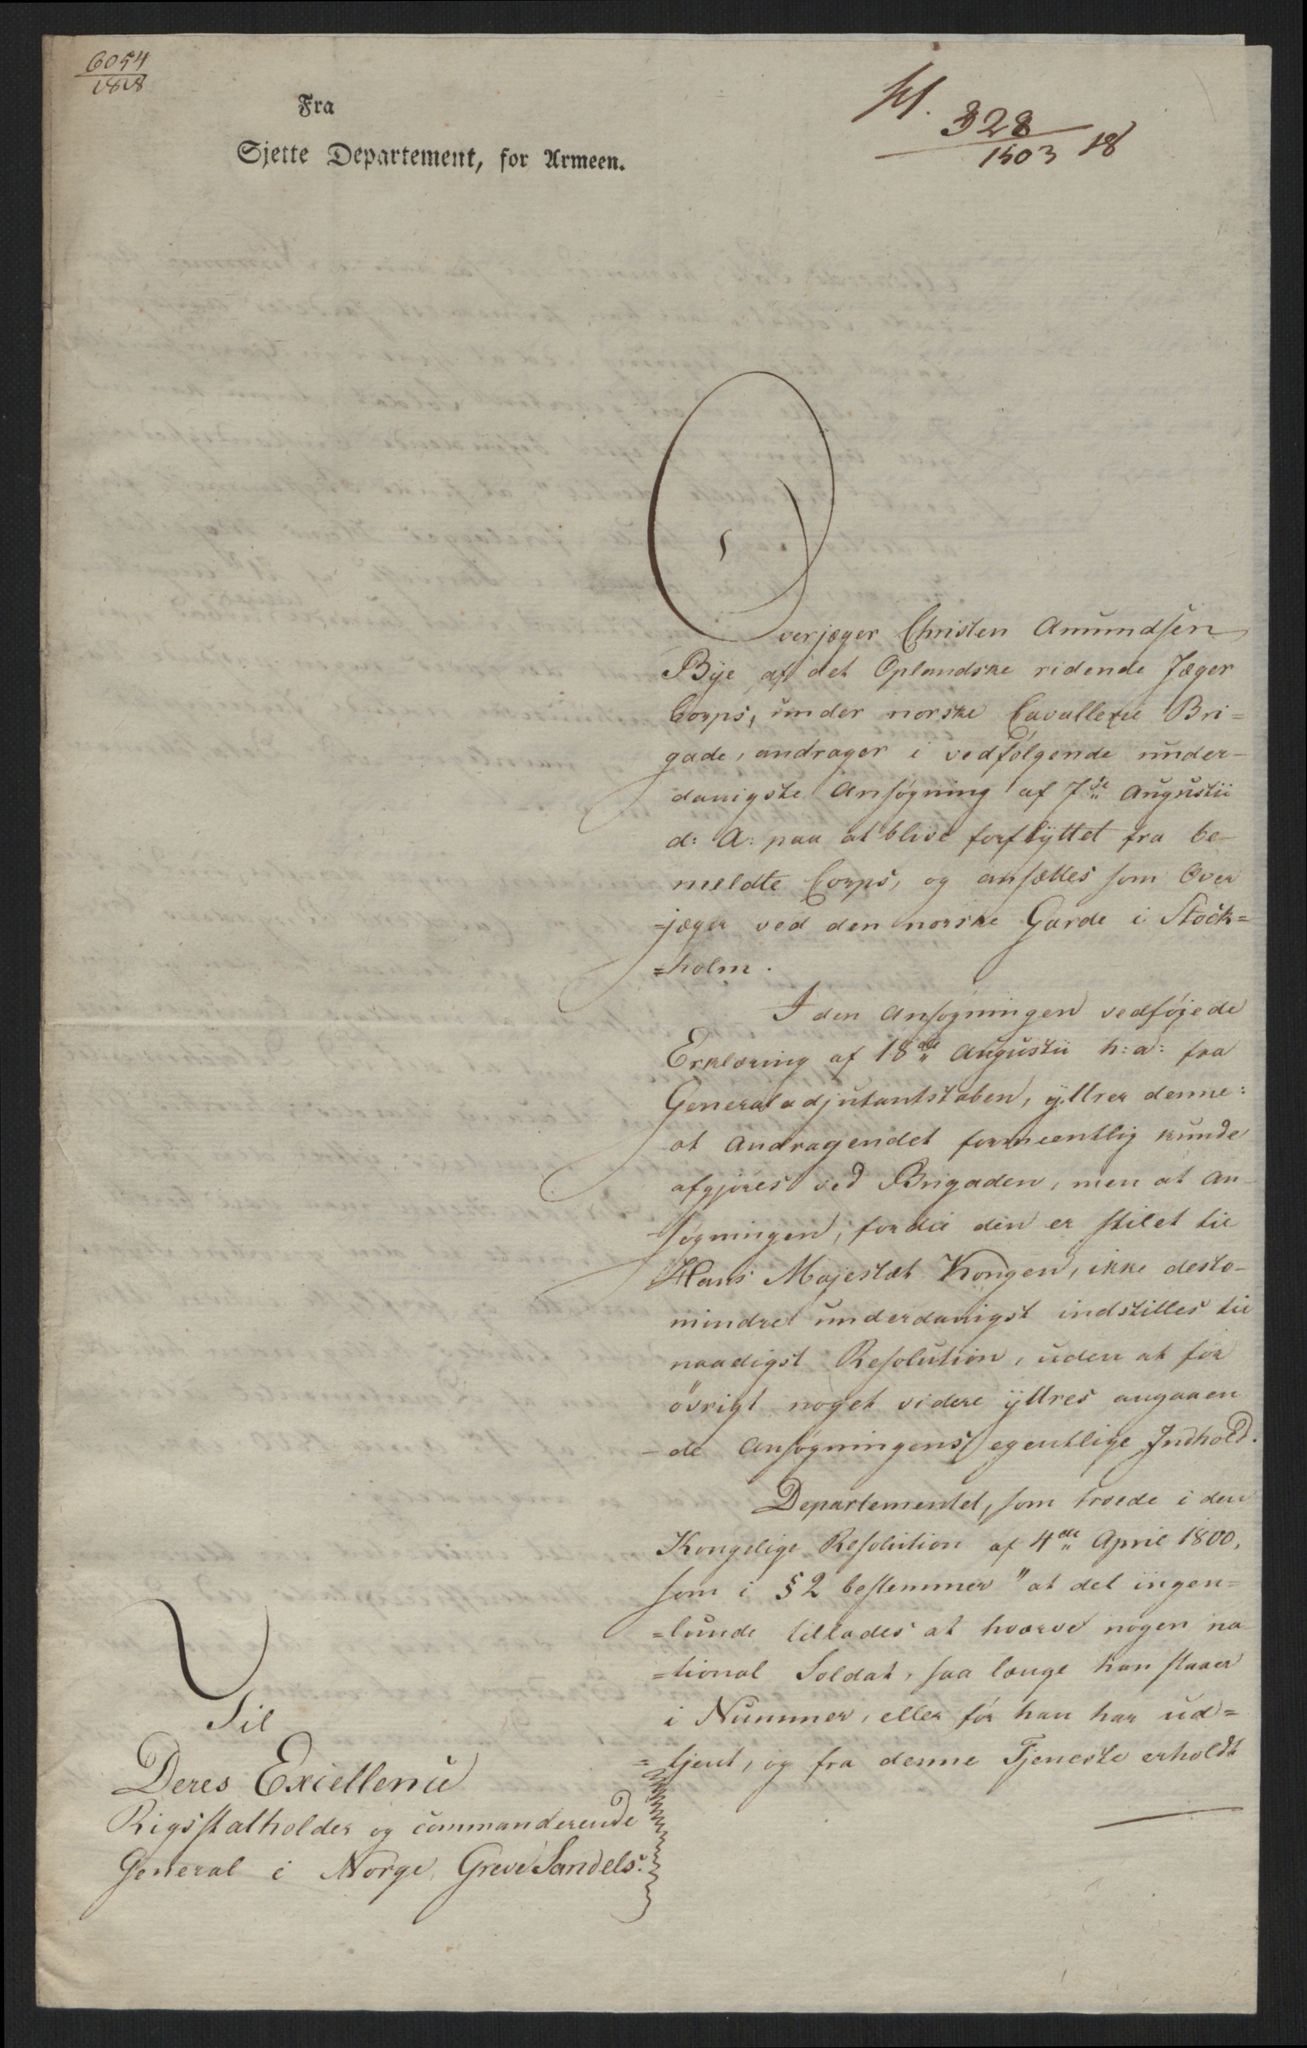 6054
1818
Fra
Sjette Departement, for Armeen.
328
1503 18
Overjæger Christen Amundsen
Bye af det Oplandske ridende Jæger
Corps, under norske Cavallerie Bri=
gade, andrager i vedfølgende under-
danigste Ansøgning af 7de Augustii
d: A: paa at blive forflyttet fra be-
meldte Corps, og ansættes som Over
=jæger ved den norske Garde i Stock=
=holm.
I den Ansøgningen vedføjede
Erklæring af 18de Augustii h: a: fra
Generaladjutantstaben, yttrer denne:
at Andragendet formeentlig kunde
afgjøres ved Brigaden, men at An-
søgningen, fordi den er stilet til
Hans Majestæt Kongen, ikke desto-
mindre underdanigst indstilles til
naadigst Resolution, uden at før
øvrigt noget videre yttres angaaen
-de Ansøgningens egentlige Indhold.
Departementet, som troede i den
Kongelige Resolution af 4de April 1800,
som i § 2 bestemmer "at det ingen=
=lunde tillades at hværve nogen na
=tional Soldat, saa længe han staaer
i Nummer, eller før han har ud=
=tjent, og fra denne Tjeneste erholdt
Til
Deres Excellence
Rigsstatholder og commanderende
General i Norge, Greve Sandels.